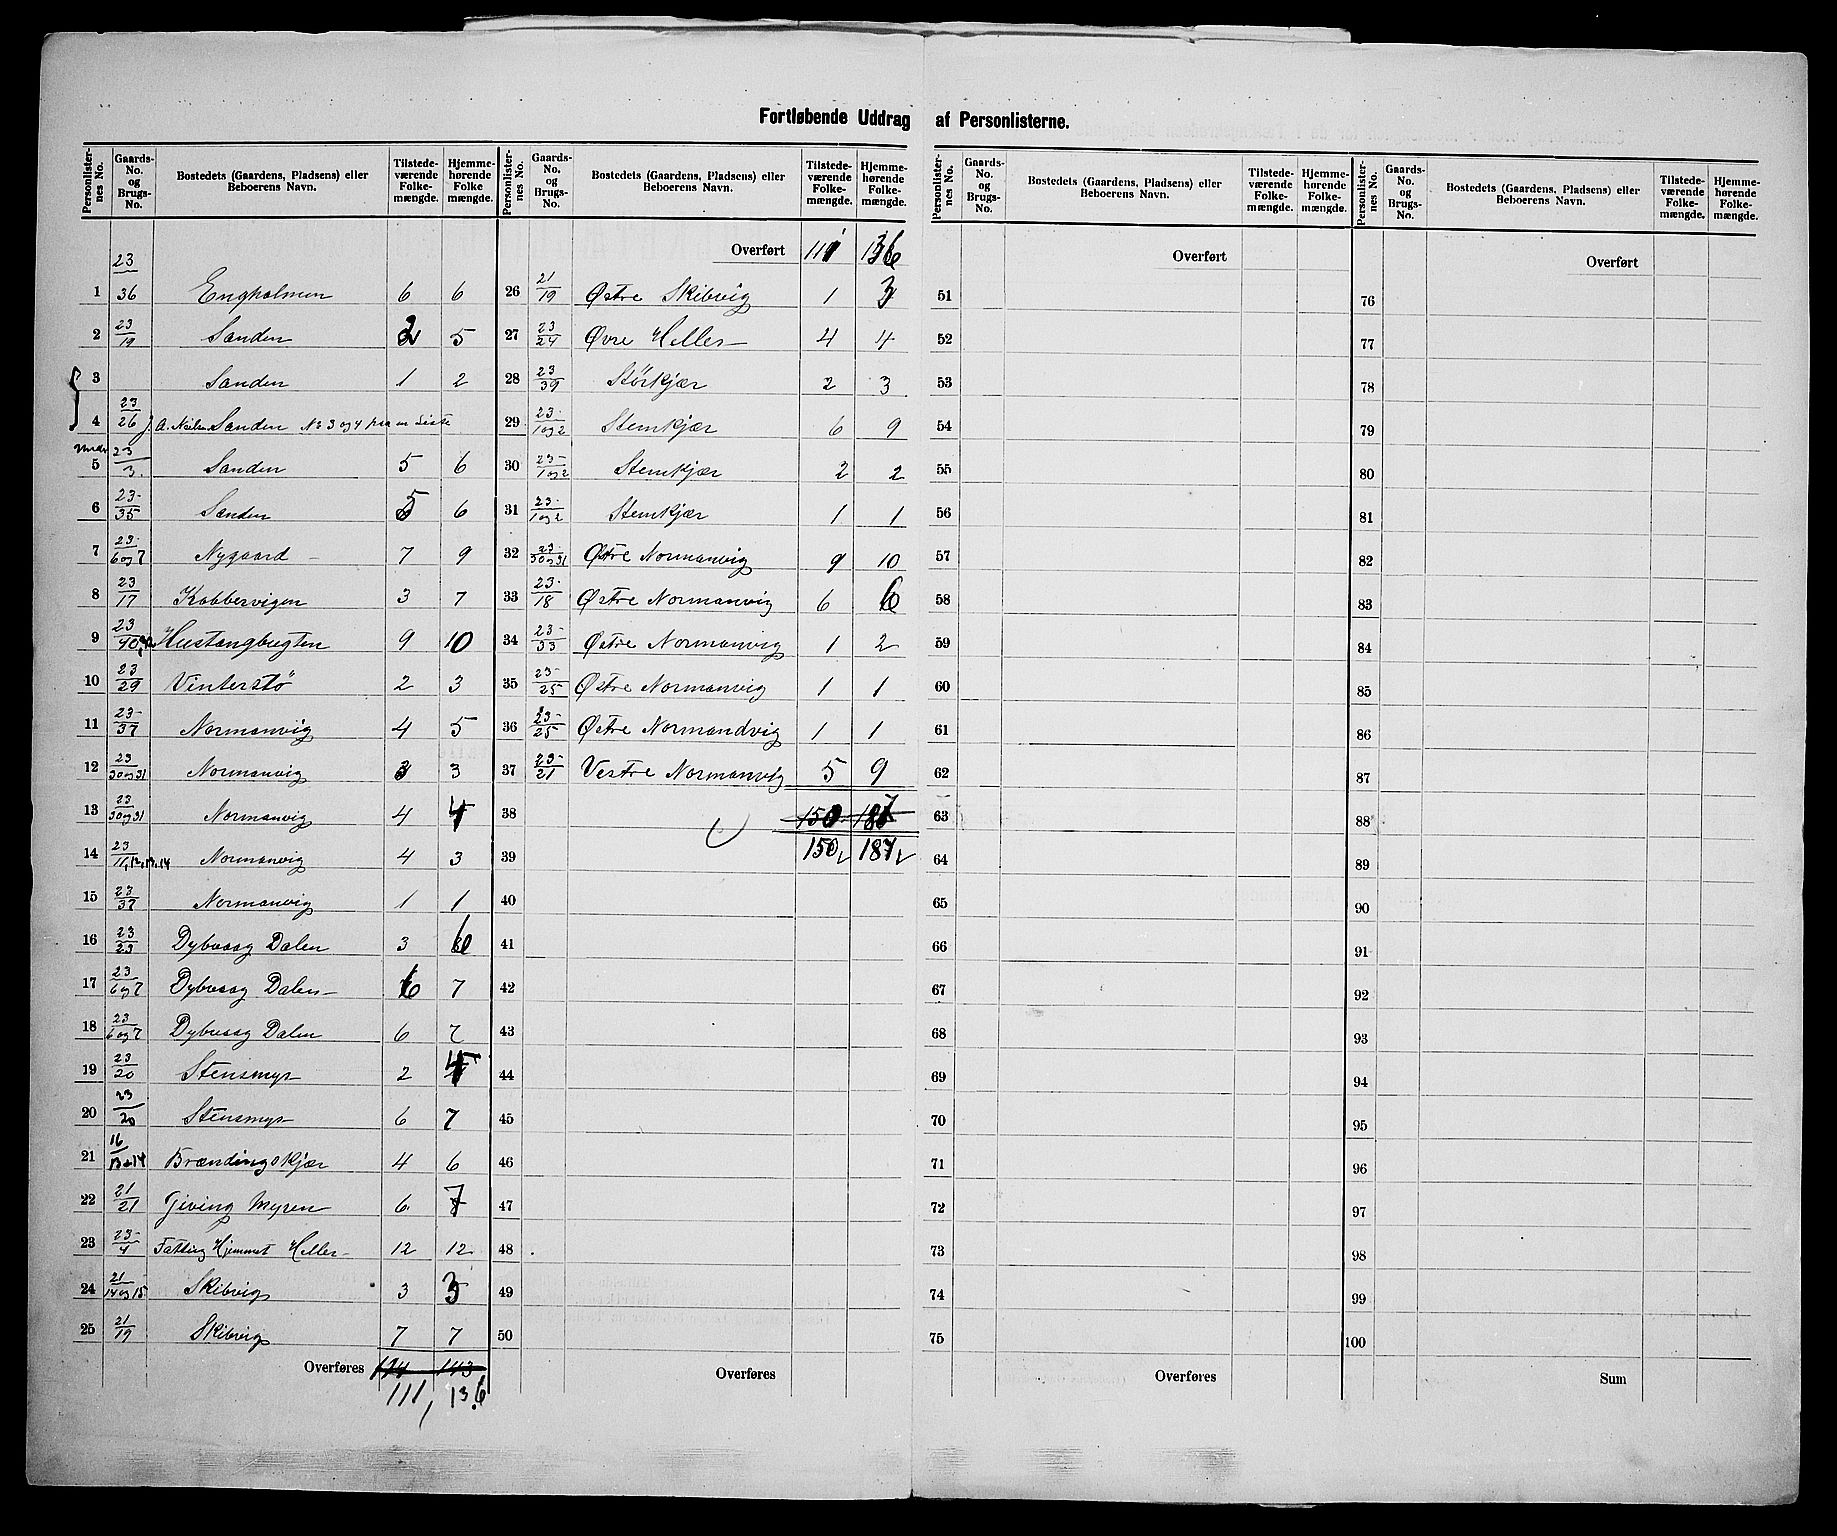 Fortløbende Uddrag af Personlisterne.
Personlisternes No. | Gaards-No. og Brugs-No. | Bostedets (Gaardens, Pladsens) eller Beboerens Navn. | Tilstedeværende Folkemængde. | Hjemmehørende Folkemængde.
1 23/36 Engholmen 6 6
2 23/19 Sanden 2 5
3 Sanden 1 2
4 23/26 A. Neils. Sanden No 3 og 4 paa en Liste
5 23/3 Sanden 5 6
6 23/35 Sanden 5 6
7 23/6 og 7 Nygaard 7 9
8 23/17 Kobbervigen 3 7
9 23/40 Hustangbugten 9 10
10 23/29 Vinterstö 2 3
11 23/37 Normanvig 4 5
12 23/30 og 31 Normanvig 3 3
13 23/30 og 31 Normanvig 4 4
14 23/11, 12, 13, 14 Normanvig 4 3
15 23/37 Normanvig 1 1
16 23/23 Dybvaag Dalen 3 6
17 23/6 og 7 Dybvaag Dalen 6 7
18 23/6 og 7 Dybvaag Dalen 6 7
19 23/20 Stensmyr 2 4
20 23/20 Stensmyr 6 7
21 16/13 14 Brændingskjær 4 6
22 21/21 Giving Myren 6 7
23 23/4 Fattig Hjemmet Heller 12 12
24 21/14 og 15 Skibvig 3 3
25 21/19 Skibvig 7 7
Overføres 143
111, 136
Overført 111 136
26 21/19 Østre Skibvig 1 3
27 23/24 Øvre Heller 4 4
28 23/39 Störkjær 2 3
29 23/1 og 2 Stemkjær 6 9
30 23/1 og 2 Stemkjær 2 2
31 23/1 og 2 Stemkjær 1 1
32 23/30 og 31 Østre Normanvig 9 10
33 23/18 Østre Normanvig 6 6
34 23/33 Østre Normanvig 1 2
35 23/25 Østre Normanvig 1 1
36 23/25 Østre Normandvig 1 1
37 23/21 Vestre Normanvig 5 9
38 150 187
39 150 187
40
41
42
43
44
45
46
47
48
49
50
Overføres
Overført
51
52
53
54
55
56
57
58
59
60
61
62
63
64
65
66
67
68
69
70
71
72
73
74
75
Overføres
Overført
76
77
78
79
80
81
82
83
84
85
86
87
88
89
90
91
92
93
94
95
96
97
98
99
100
Sum